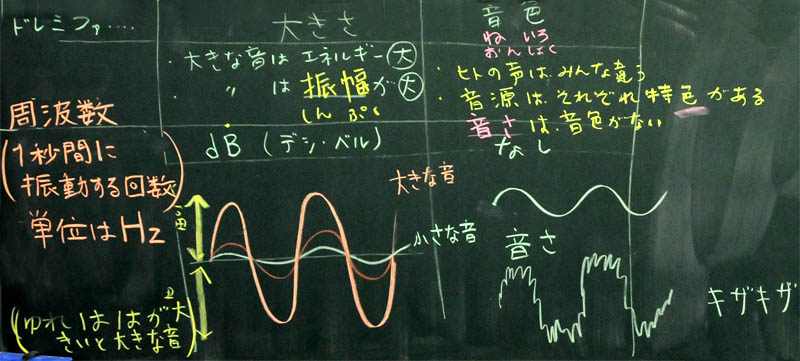 ドレミファ.....
周波数
(1秒間に
振動する回数)
単位はHz
(ゆれはばが大
きいと大きな音)
大きさ
・大きな音は エネルギー大
・ 〃 は 振幅が大
しんぷく
dB (デシ・ベル)
大きな音
小さな音
音色
ねいろ
おんしょく
・ヒトの声はみんな違う
・音源はそれぞれ特色がある
音さは音色がない
なし
音さ
ギザギザ